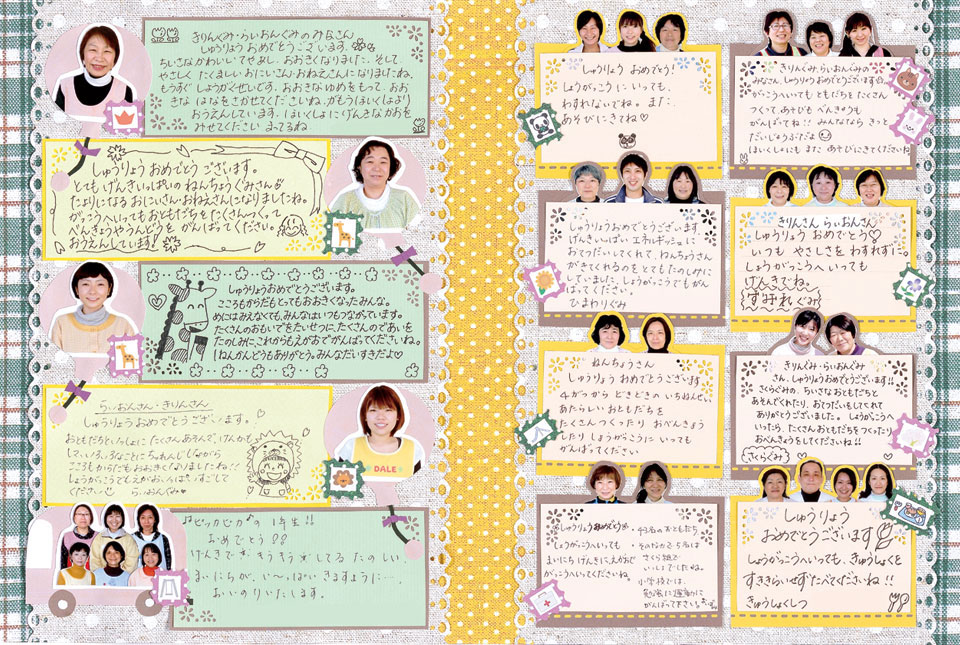 きりんぐみ・らいおんぐみのみなさん
しゅうりょう おめでとうございます。
ちいさなかわいい てやあし、おおきくなりました。そして、
やさしく たくましい おにいさん・おねえさんになりましたね。
もうすぐ しょうがくせいです。おおきなゆめをもって、おお
きな はなをさかせてくださいね。
おうえんしています。ほいくしょにげんきなかおを
みせてください まってるね
しゅうりょう おめでとうございます。
とても げんきいっぱいの ねんちょうぐみさん
たよりになる おにいさん・おねえさんになりましたね。
がっこうへいっても おともだちを たくさんつくって
べんきょうやうんどうを がんばってください。
おうえんしています!
しゅうりょうおめでとうございます。
こころもからだもとってもおおきくなったみんな。
めにはみえなくても、みんなはいつもつながっています。
たくさんのおもいでをたいせつに、たくさんのであいを
たのしみに、これからもえがおでがんばってくださいね。
1ねんかんどうもありがとう。みんなだいすきだよ♡
らいおんさん・きりんさん
しゅうりょうおめでとうございます。
おともだちといっしょに たくさんあそんで、けんかも
して、いろいろなことに ちゃれんじしながら
こころもからだも おおきくなりましたね!!
しょうがっこうでも えがお、いっぱいすごして
ください らいおんぐみ
DALE
♪ピッカピカ♪の 1年生!!
おめでとう!!
けんきで もうもう してる たのしい
まいにちが、い〜っぱい きますように…。
おいのりいたします。
しゅうりょう おめでとう!
しょうがっこうに いっても、
わすれないでね。また、
あそびにきてね♡
きりんぐみ、らいおんぐみの
みなさん、しゅうりょうおめでとうございます。
がっこうへいっても ともだちを たくさん
つくって、あそびも べんきょうも
がんばってね!! みんななら きっと
だいじょうぶだよ
ほいくしょにも また あそびにきてくださいね。
しゅうりょうおめでとうございます
げんきいっぱい エネルギッシュに
おてつだいしてくれて、ねんちょうさん
がきてくれるのを とても たのしみに
していました。しょうがっこうでもがん
ばってください。
ひまわりぐみ
きりんさん らいおんさん
しゅうりょう おめでとう♡
いつも やさしさを わすれずに。
しょうがっこうへ いっても
げんきでね。
すみれぐみ
ねんちょうさん
しゅうりょう おめでとうございます
4がつから どきどきの いちねんせい。
あたらしい おともだちを
たくさんつくったり おべんきょう
したり しょうがっこうに いっても
がんばってください
きりんぐみ・らいおんぐみ
さん、しゅうりょうおめでとうございます!!
さくらぐみの、ちいさなおともだちと
あそんでくれたり、おてつだいをしてくれて
ありがとうございました。しょうがっこうへ
いったら、たくさんおともだちをつくったり
おべんきょうをしてくださいね!!
(さくらぐみ)
しゅうりょうおめでとう
しょうがっこうへいっても
まいにち げんきに えがおで
がっこうへいってくださいね。
・43名のおともだち
・そのなかで 5名は
さくら組で
いっしょでしたね。
小学校では、
勉強に運動に
がんばって下さいネ。
しゅうりょう
おめでとうございます
しょうがっこうへいっても、きゅうしょくを
すききらいせず たべてくださいね!!
きゅうしょくしつ